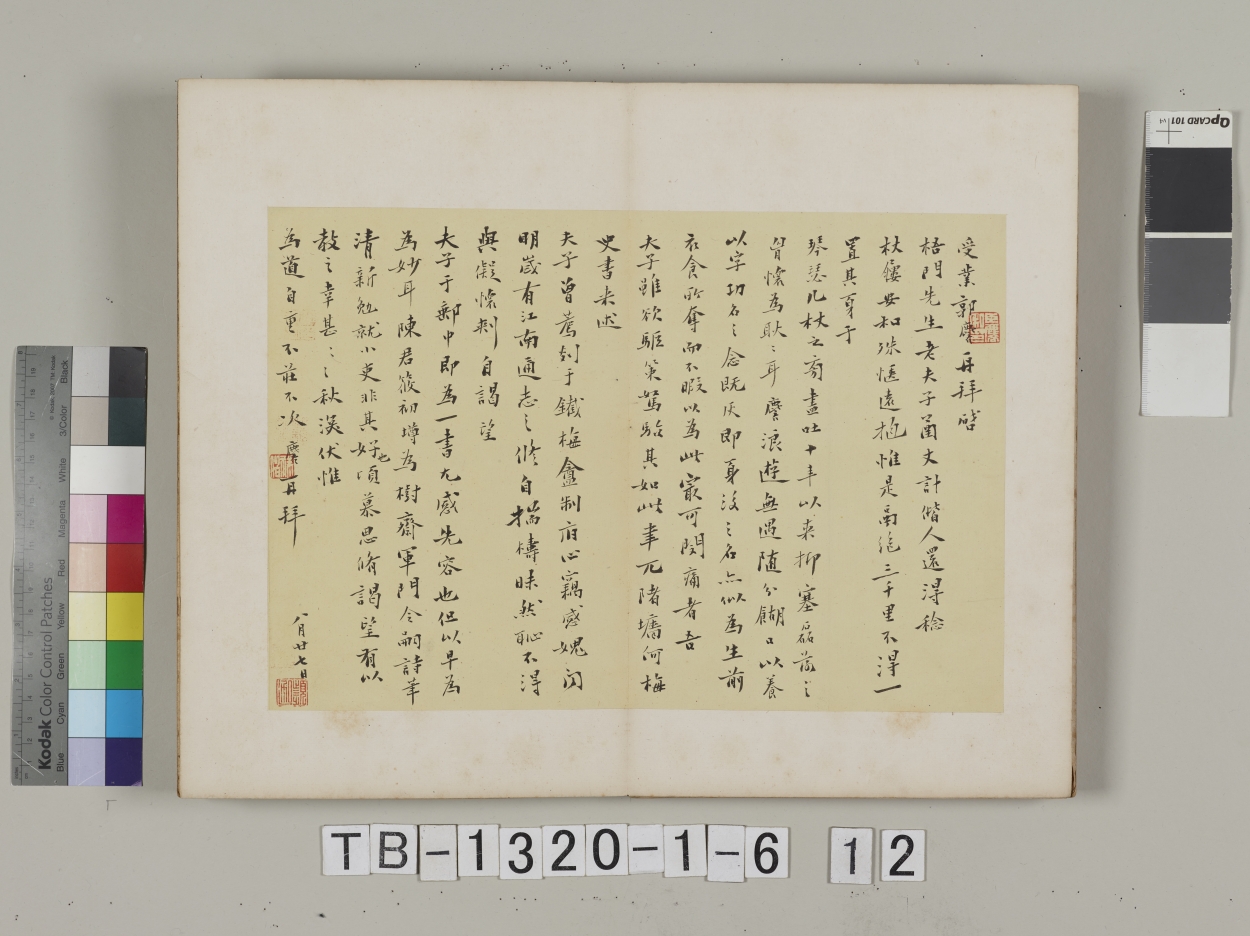 受業郭麐再拜啓
梧門先生老夫子函丈計偕人還得稔
杖履安和殊慰遠抱惟是鬲絶三千里不得一
置其身于
琴瑟几杖之旁盡吐十年以来抑塞磊落之
胷懷為耿〻耳麐浪遊無遇随分餬口以養
以字功名之念既灰即身後之名亦似為生前
衣食所奪而不暇以為此最可閔痛者吾
夫子雖欲驅策駑駘其如此聿兀堵墻何梅
史書来述
夫子曾薦剡于鐵梅盦制府心竊感媿聞
明歲有江南通志之修自揣檮昧然恥不得
與儗懷刺自謁望
夫子于郵中即為一書尤感先容也但以早為
為妙耳陳君筱初壻為樹齋軍門令嗣詩筆
清新勉就小吏非其好也頃慕思脩謁望有以
教之幸甚〻〻秋深伏惟
為道自重不莊不次麐再拜
八月廿七日
TB-1320-1-6 12
Kodak Color Control Patches
Blue Cyan Green Yellow Red Magenta White 3/Color Black
QPCARD 101 v4